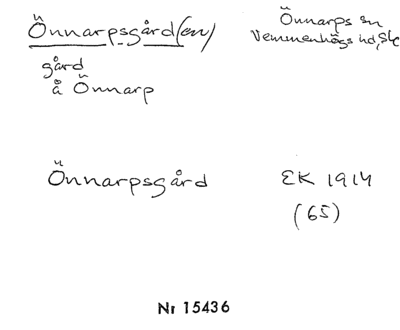 Önnarpsgård(en)
Önnarps sn
Vemmenhögs hd, Sk
gård
å Önnarp
Önnarpsgård
EK 1914
(65)
Nr 15436